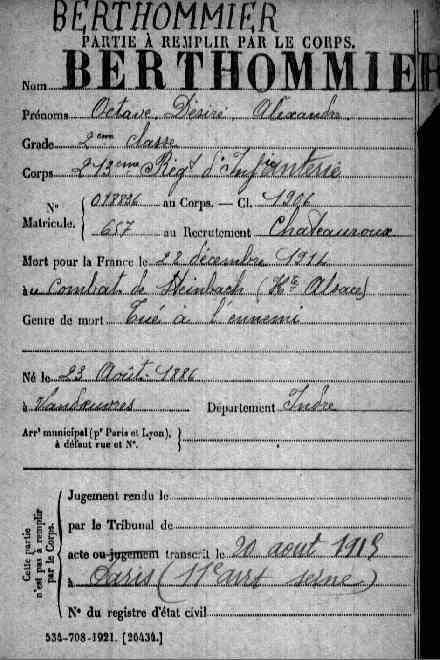 BERTHOMMIER
PARTIE À REMPLIR PAR LE CORPS.
Nom BERTHOMMIER
Prénoms Octave Désiré Alexandre
Grade 2ème classe
Corps 213ème Rigt d'Infanterie
N° Matricule. 018836 au Corps. — Cl. 1906
657 au Recrutement Chateauroux
Mort pour la France le 22 décembre 1914
au Combat de Steinbach (Hte Alsace)
Genre de mort Tué a l'ennemi
Né le 23 Août 1886
à Vandœuvres Département Indre
Arrt municipal (pr Paris et Lyon), à défaut rue et N°.
Cette partie n'est pas à remplir par le Corps.
Jugement rendu le
par le Tribunal de
acte ou jugement transcrit le 20 aout 1915
à Paris (11e arrt seine)
N° du registre d'état civil
534-708-1921. [26434.]